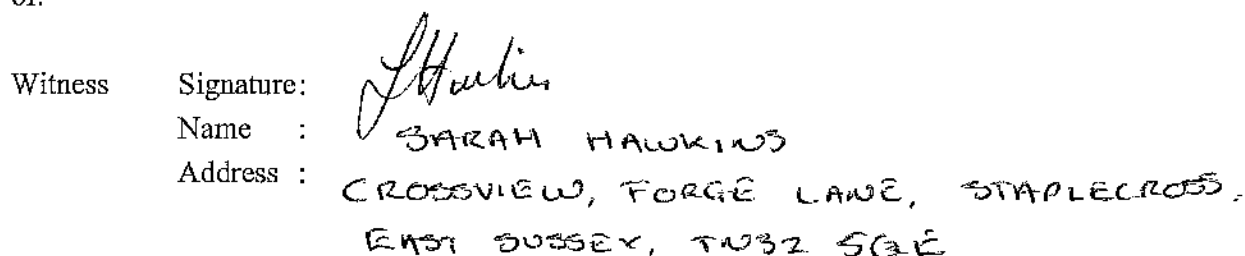 of:
Witness Signature: SHawkins
Name : SARAH HAWKINS
Address : CROSSVIEW, FORGE LANE, STAPLECROSS.
EAST SUSSEX, TN32 5QE